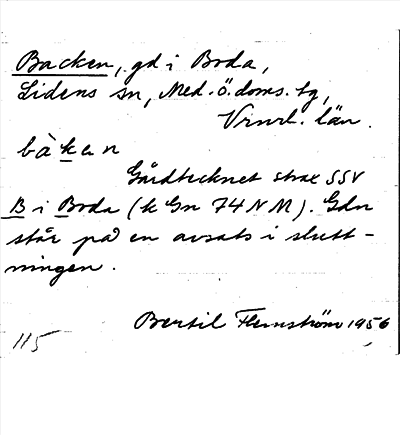 Backen, gd i Boda,
Lidens sn, Med. ö. doms. tg,
Vrnrl. län.
bàken
Gårdtecknet strax SSV
B i Boda (k Gn 74 N M). Gdn
står på en avsats i slutt-
ningen.
Bertil Flemström 1956
115